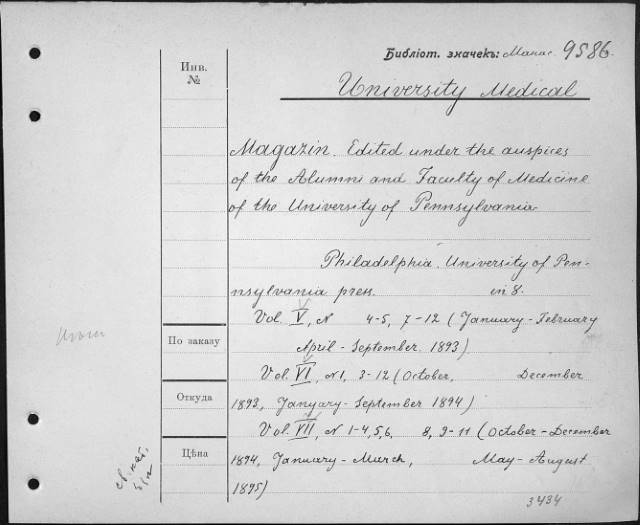 Библіот. значекъ: Магаз. 9586.
Инв.
№
University Medical
Magazin. Edited under the auspices
of the Alumni and Faculty of Medicine
of the University of Pennsylvania
Philadelphia. University of Pen-
nsylvania press. in 8.
Vol. V, N 4-5, 7-12 (January-February
По заказу
April-September 1893)
Vol. VI, N1, 3-12 (October, December
Откуда
1893, January-September 1894)
Vol. VII, N 1-4,5,6, 8, 9-11 (October-December
Цѣна
1894, January-March, May-August
1895)
3434